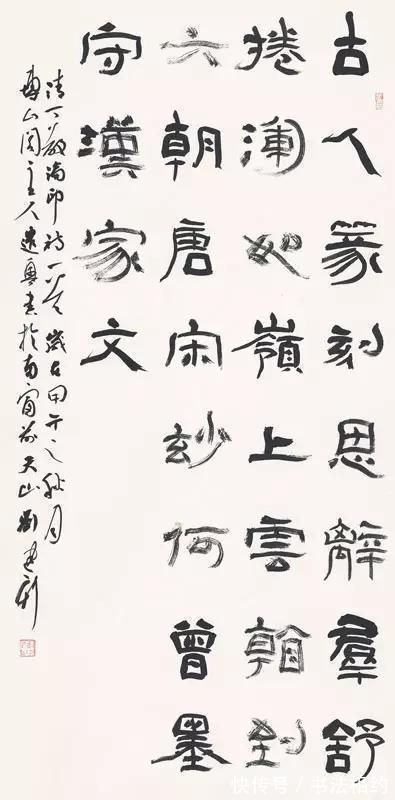 古人篆刻思離羣舒
捲渾如嶺上雲看到
六朝唐宋妙何曾墨
守漢家文
清丁敬論印詩一首 歲在甲午之秋月
山閣主人書於南天山劉建新
快传号 / 书法相约